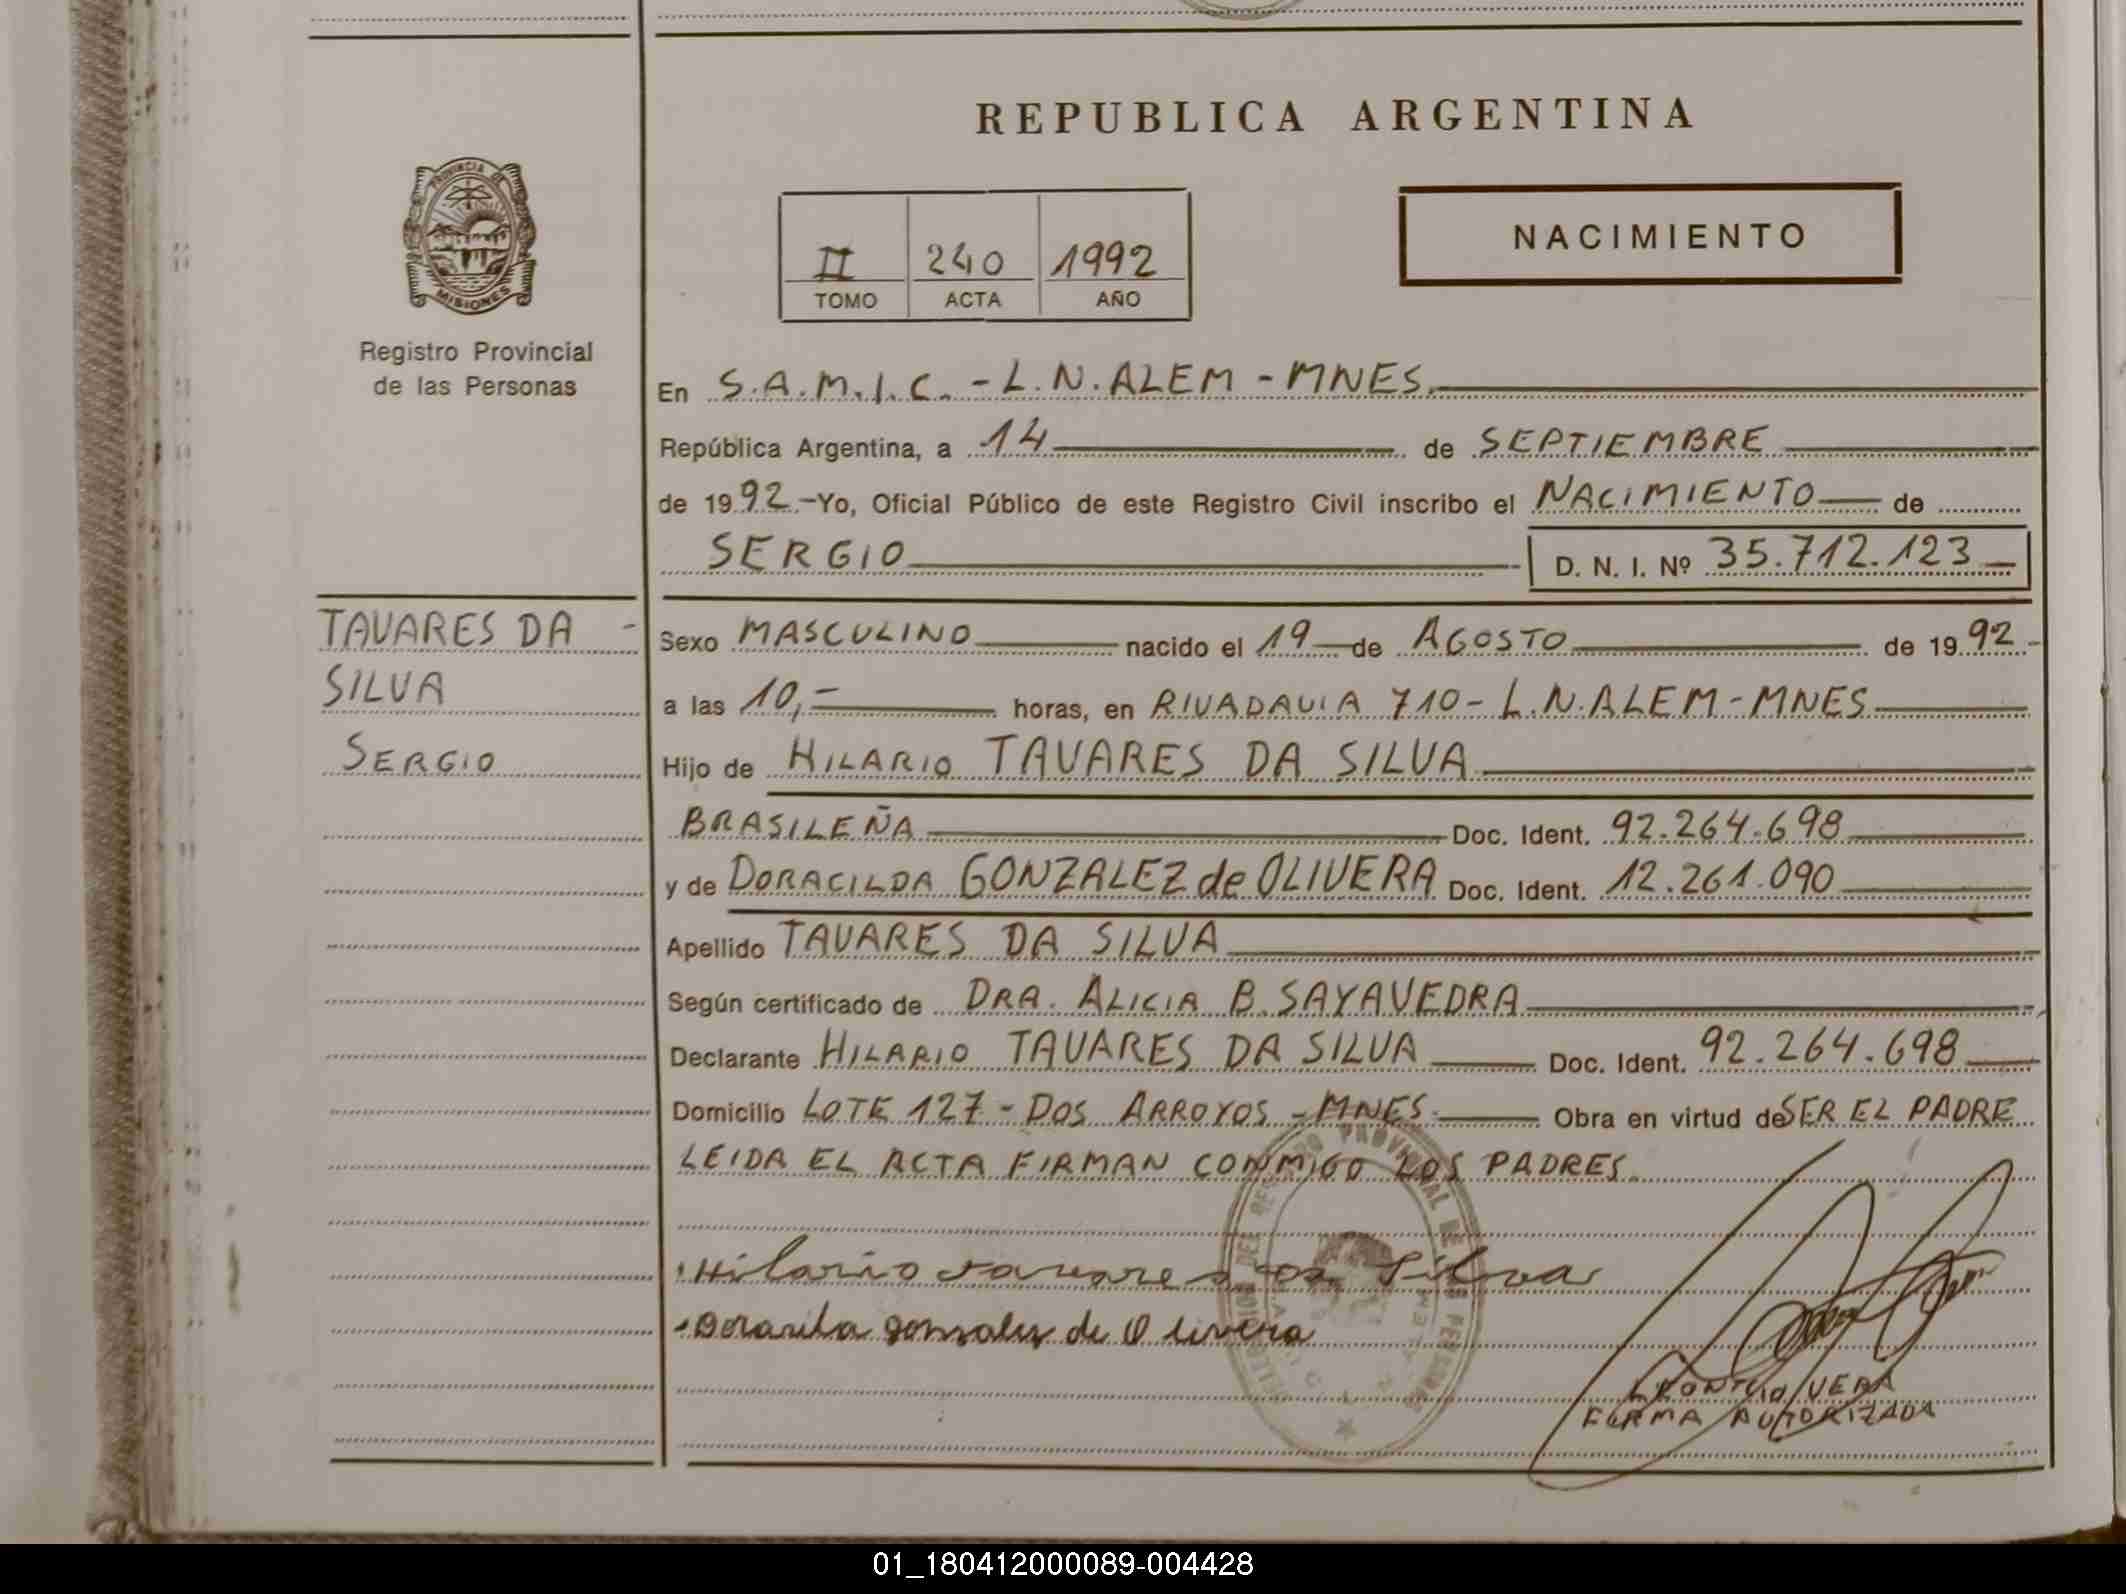 REPUBLICA ARGENTINA
PROVINCIA DE
MISIONES
Registro Provincial
de las Personas
II 240 1992
TOMO ACTA AÑO
NACIMIENTO
En S.A.M.I.C. - L.N.ALEM - MNES.
República Argentina, a 14 de SEPTIEMBRE
de 1992.-Yo, Oficial Público de este Registro Civil inscribo el NACIMIENTO de
SERGIO D. N. I. Nº 35.712.123
TAVARES DA -
SILVA
SERGIO
Sexo MASCULINO nacido el 19 de AGOSTO de 1992.-
a las 10,- horas, en RIVADAVIA 710 - L.N.ALEM - MNES
Hijo de HILARIO TAVARES DA SILVA
BRASILEÑA Doc. Ident. 92.264.698
y de DORACILDA GONZALEZ de OLIVERA Doc. Ident. 12.261.090
Apellido TAVARES DA SILVA
Según certificado de DRA. ALICIA B. SAYAVEDRA
Declarante HILARIO TAVARES DA SILVA Doc. Ident. 92.264.698
Domicilio LOTE 127 - DOS ARROYOS - MNES. Obra en virtud de SER EL PADRE
LEIDA EL ACTA FIRMAN CONMIGO LOS PADRES.
Hilario tavares da Silva
gonzalez de Olivera
VERA
FIRMA AUTORIZADA
01_180412000089-004428